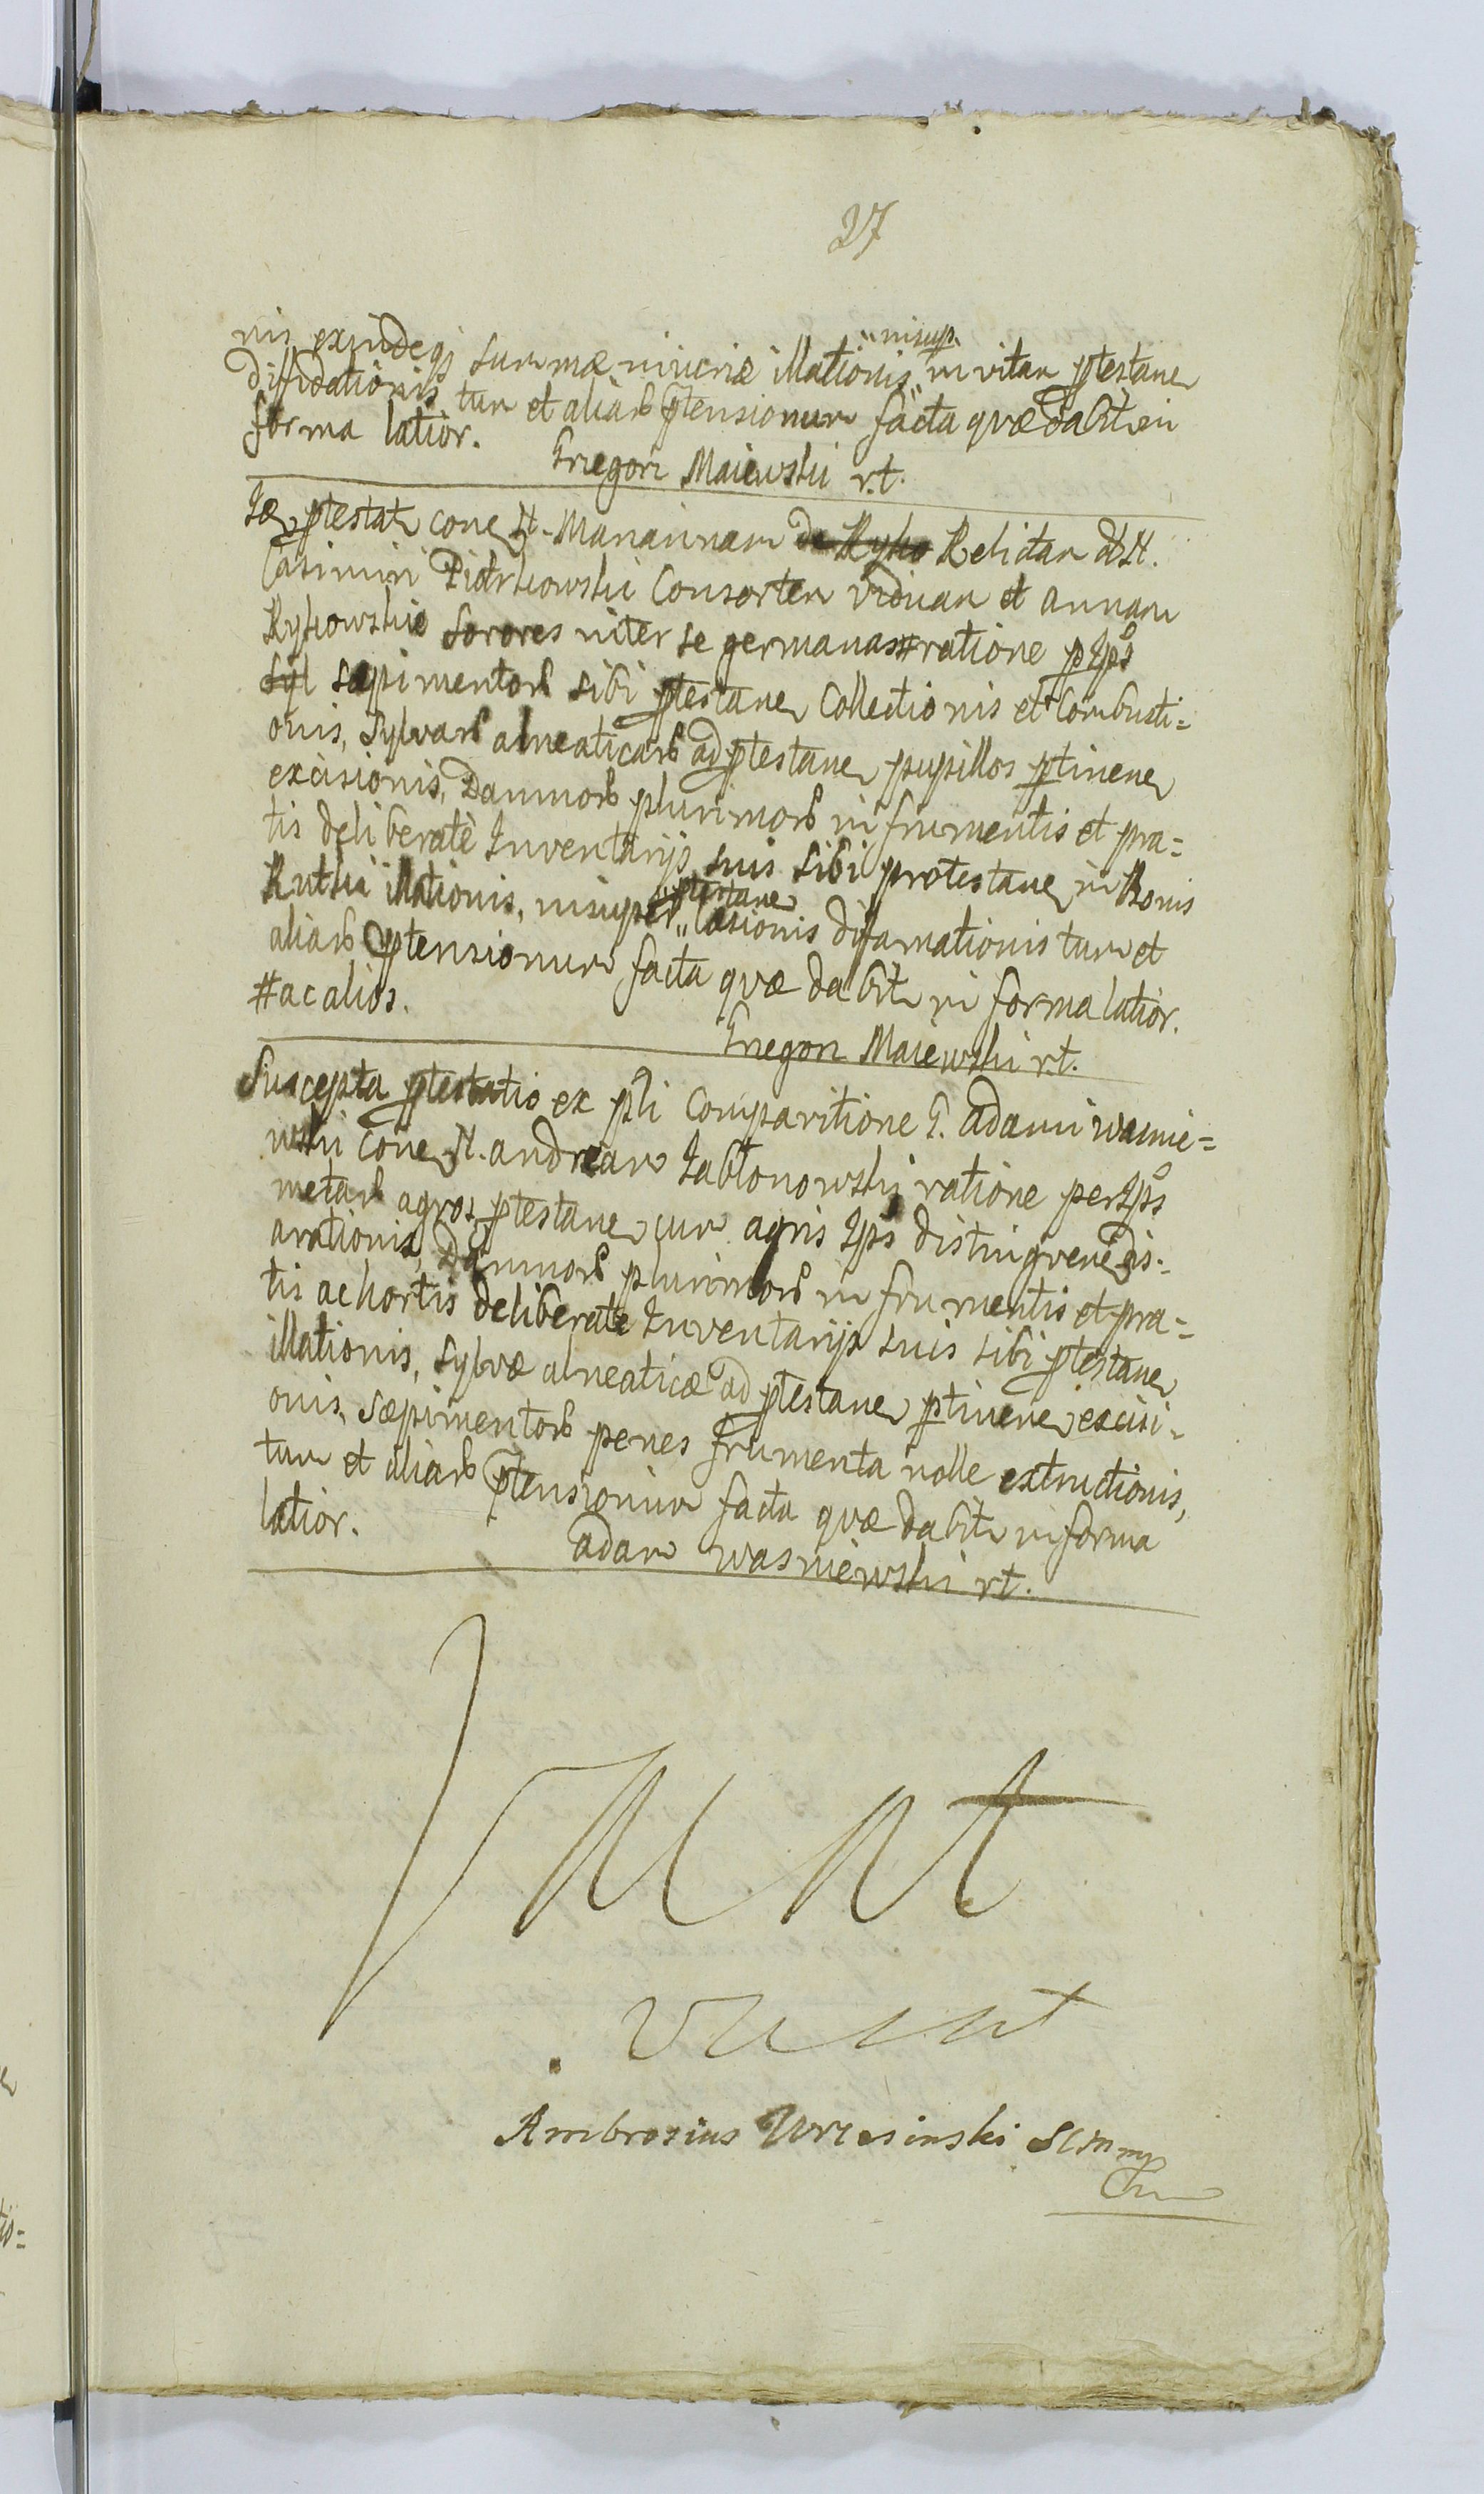 27
nis exindeq; summæ iniuriæ illationis "insup." in vitam ptestane
diffidationis tum et aliarb ptensionum facta quæ dabit in
forma latior.
Gregorz Maiewski r.t.
Ide ptestat cone N. Mariannam de Ryko Relictam olim N.
Casimiri Piotrkowski Consortem viduam et annam
Rykowskie sorores inter se germanas # ratione p Ips
syl sæpimentorb sibi ptestane Collectionis et Combusti=
onis, Sylvarb alneaticarb ad ptestane pupillos ptinene
excisionis, Damnorb plurimorb in frumentis et pra=
tis deliberatè Inventarijs suis sibi protestane in Bonis
Rutki illationis, insuper "ptestane" læsionis difamationis tum et
aliarb ptensionum facta quæ dabit in forma latior.
# ac alios.
Gregorz Maiewski r.t.
Suscepta ptestatio ex pli Comparitione G. Adami wasnie=
wski Cone N. andream Jabłonowski ratione per Ips
metarb agros ptestane cum agris Ips distingvene dis=
arationis, Damnorb plurimorb in frumentis et pra=
tis ac hortis deliberate Inventarijs suis sibi ptestane
illationis, sylvæ alneaticæ ad ptestane ptinene excisi=
onis, sæpimentorb penes frumenta nolle extructionis,
tum et aliarb ptensionum facta quæ dabit in forma
latior.
adam wasniewski rt.
vacat
Ambrosius Wrzesinski